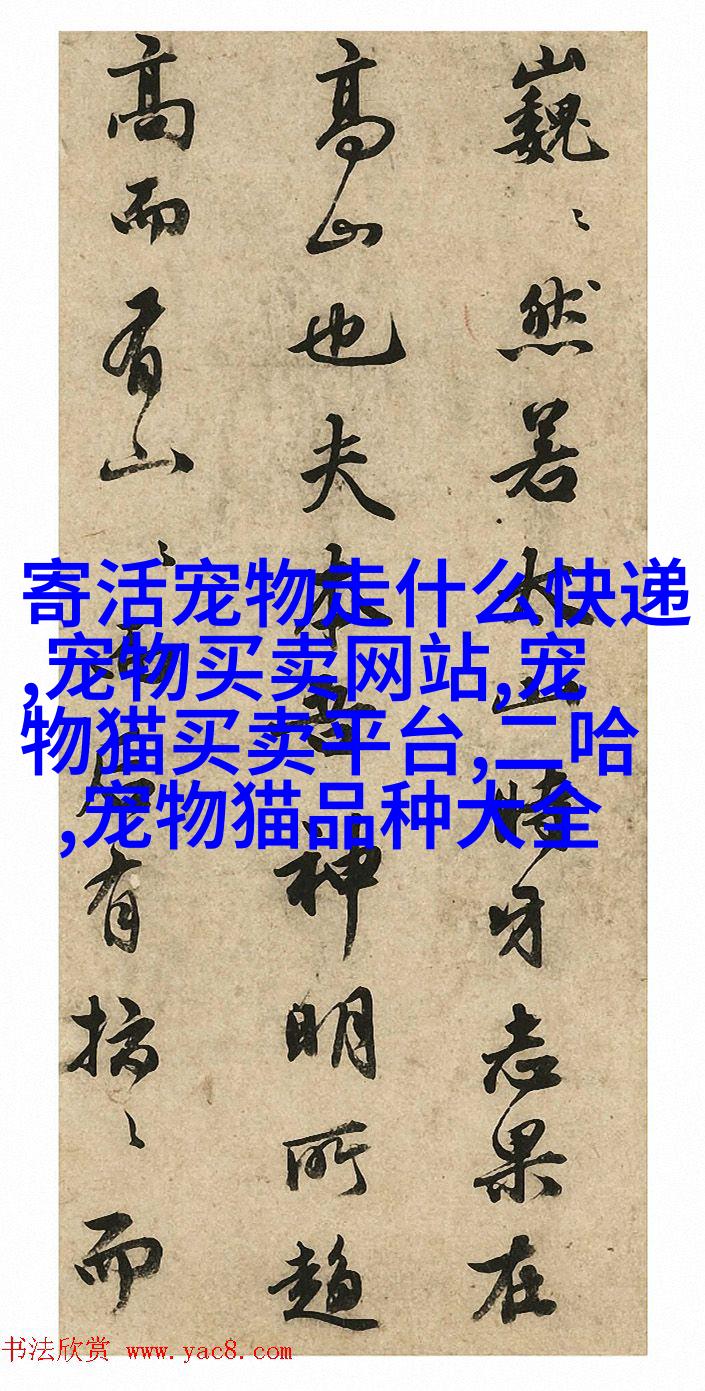 巍〻然若太山時牙志果在
高山也夫本吾神明所趨
高而有山〻有〻而
寄活宠物走什么快递
,宠物买卖网站,宠
物猫买卖平台,二哈
,宠物猫品种大全
书法欣赏 www.yac8.com